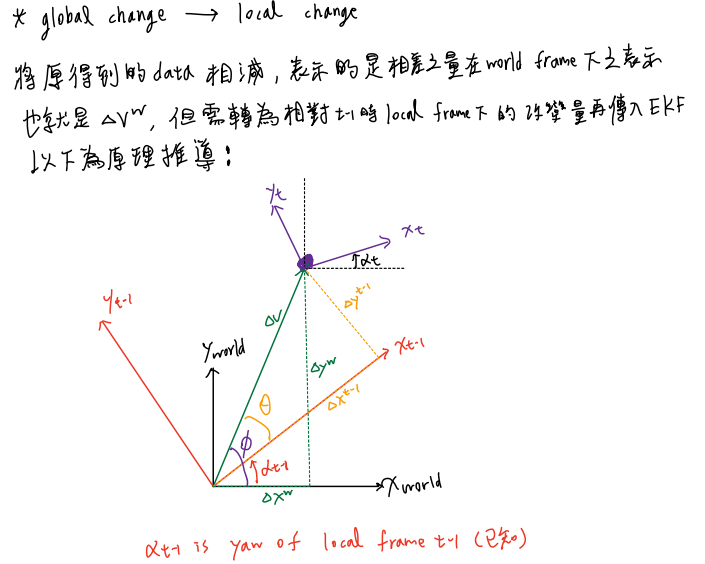 * global change → local change
將原得到的data相減，表示的是相差之量在world frame下之表示
也就是 ΔVᵂ，但需轉為相對t-1時local frame下的改變量再傳入EKF
以下為原理推導：
yₜ
xₜ
αₜ
yₜ₋₁
Δyᵗ⁻¹
ΔV
Yworld
xₜ₋₁
Δyᵂ
Δxᵗ⁻¹
θ
ϕ
αₜ₋₁
Δxᵂ
Xworld
αₜ₋₁ is yaw of local frame t-1 (已知)